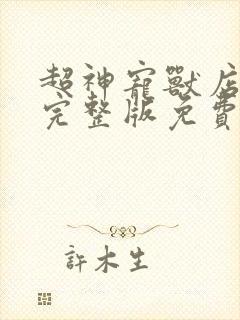 超神寵獸店
完整版免費
許木生